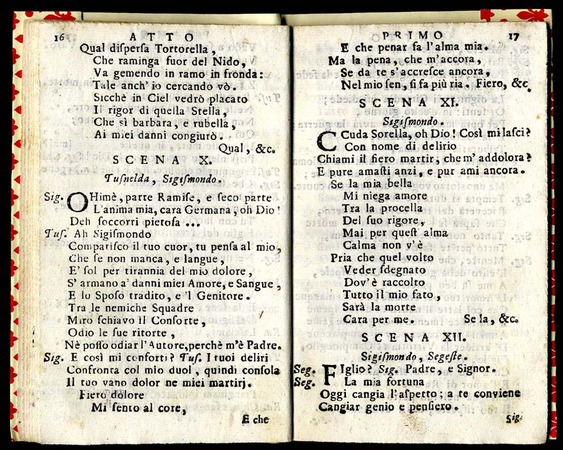 16 ATTO
Qual dispersa Tortorella,
Che raminga fuor del Nido,
Va gemendo in ramo in fronda:
Tale anch' io cercando vò.
Sicchè in Ciel vedrò placato
Il rigor di quella Stella,
Che sì barbara, e rubella,
Ai miei danni congiurò.
Qual, &c.
SCENA X.
Tusnelda, Sigismondo.
Sig. OHimè, parte Ramise, e seco parte
L'anima mia, cara Germana, oh Dio!
Deh soccorri pietosa ...
Tus. Ah Sigismondo
Compatisco il tuo cuor, tu pensa al mio,
Che se non manca, e langue,
E' sol per tirannia del mio dolore,
S' armano a' danni miei Amore, e Sangue,
E lo Sposo tradito, e 'l Genitore.
Tra le nemiche Squadre
Miro schiavo il Consorte,
Odio le sue ritorte,
Nè posso odiar l'Autore, perchè m'è Padre.
Sig. E così mi conforti? Tus. I tuoi deliri
Confronta col mio duol, quindi consola
Il tuo vano dolor ne miei martirj.
Fiero dolore
Mi sento al core,
E che
PRIMO 17
E che penar fa l'alma mia.
Ma la pena, che m'accora,
Se da te s'accresce ancora,
Nel mio sen, si fa più ria. Fiero, &c.
SCENA XI.
Sigismondo.
CCuda Sorella, oh Dio! Così mi lasci?
Con nome di delirio
Chiami il fiero martir, che m' addolora?
E pure amasti anzi, e pur ami ancora.
Se la mia bella
Mi niega amore
Tra la procella
Del suo rigore,
Mai per quest alma
Calma non v'è
Pria che quel volto
Veder sdegnato
Dov'è raccolto
Tutto il mio fato,
Sarà la morte
Cara per me. Se la, &c.
SCENA XII.
Sigismondo, Segeste.
Seg. FIglio? Sig. Padre, e Signor.
Seg. La mia fortuna
Oggi cangia l'aspetto; a te conviene
Cangiar genio e pensiero.
Sig.